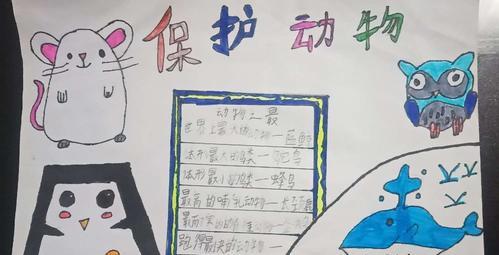 保护动物
动物之最
世界上最大的动物一蓝鲸
体形最大的鸟类一鸵鸟
体形最小的鸟类一蜂鸟
最高的哺乳动物一长颈鹿
最
跑得最快的动物一